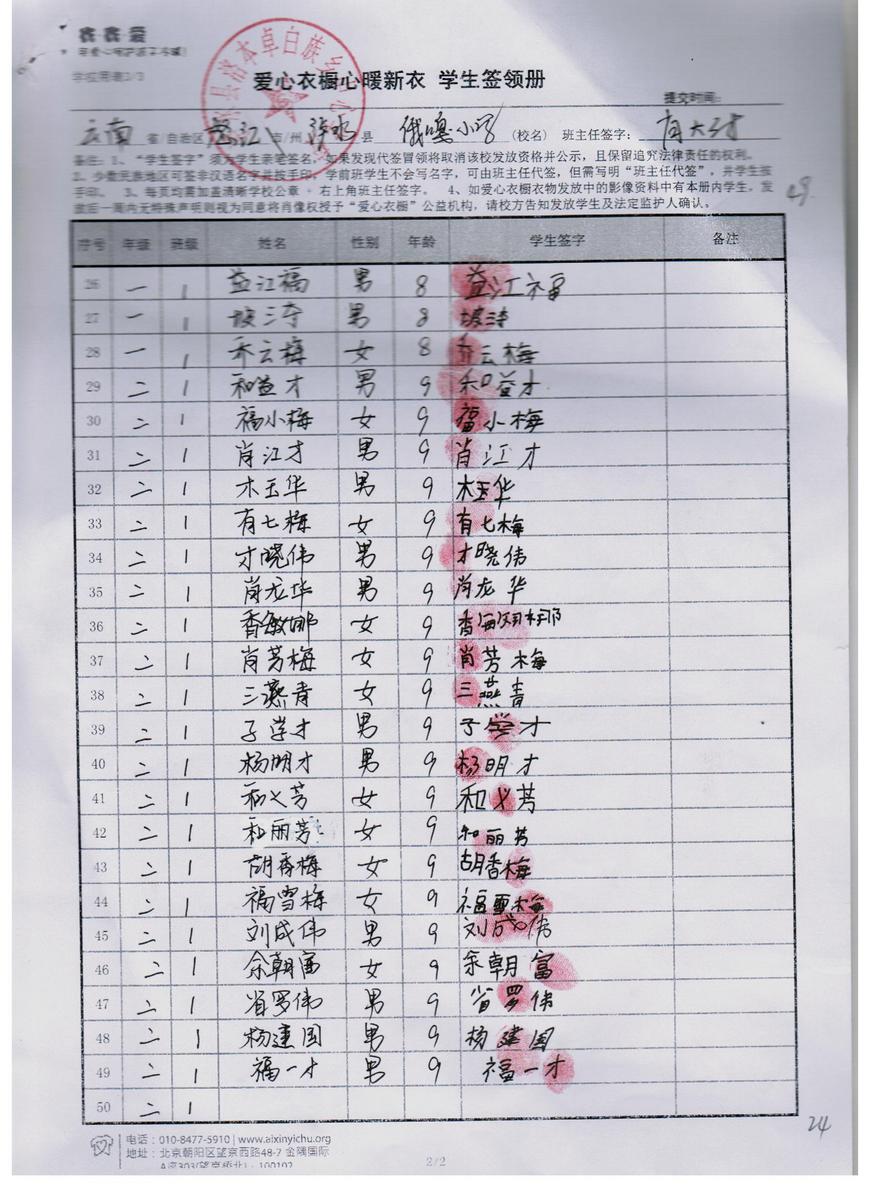 学校用表3/3
爱心衣橱心暖新衣 学生签领册
提交时间：
云南 省/自治区 怒江 市/州 泸水 县 俄嘎小学 (校名) 班主任签字：
备注：1、“学生签字”须为学生亲笔签名，如果发现代签冒领将取消该校发放资格并公示，且保留追究法律责任的权利。
2、少数民族地区可签非汉语名字并按手印，学前班学生不会写名字，可由班主任代签，但需写明“班主任代签”，并学生按
手印。 3、每页均需加盖清晰学校公章，右上角班主任签字。 4、如爱心衣橱衣物发放中的影像资料中有本册内学生，发
放后一周内无特殊声明则视为同意将肖像权授予“爱心衣橱”公益机构，请校方告知发放学生及法定监护人确认。
序号 年级 班级 姓名 性别 年龄 学生签字 备注
26 一 1 益江福 男 8 益江福
27 一 1 坡三夺 男 8
28 一 1 乔云梅 女 8 乔云梅
29 二 1 和益才 男 9 和益才
30 二 1 福小梅 女 9 福小梅
31 二 1 肖江才 男 9 肖江才
32 二 1 木玉华 男 9 木玉华
33 二 1 有七梅 女 9 有七梅
34 二 1 才晓伟 男 9 才晓伟
35 二 1 肖龙华 男 9 肖龙华
36 二 1 香敏娜 女 9
37 二 1 肖芳梅 女 9 肖芳梅
38 二 1 三燕青 女 9 三燕青
39 二 1 子学才 男 9 子学才
40 二 1 杨明才 男 9 杨明才
41 二 1 和义芳 女 9 和义芳
42 二 1 和丽芳 女 9 和丽芳
43 二 1 胡香梅 女 9 胡香梅
44 二 1 福雪梅 女 9 福雪梅
45 二 1 刘成伟 男 9 刘成伟
46 二 1 余朝富 女 9 余朝富
47 二 1 省罗伟 男 9 省罗伟
48 二 1 杨建国 男 9 杨建国
49 二 1 福一才 男 9 福一才
50 二 1
24
电话：010-8477-5910 | www.aixinyichu.org
地址：北京朝阳区望京西路48-7 金隅国际
2/2